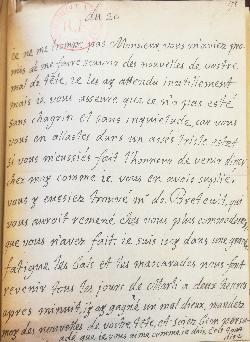 du 20
je ne me trompe pas Monsieur vous m'aviez pro-
mis de me faire scavoir des nouvelles de vostre
mal de teste, je les ay attendu inutilement
mais je vous asseure que ce n'a pas esté
sans chagrin et sans inquietude car vous
vous en allastes dans un assés triste estat
si vous m'eussiés fait l'honneur de venir
chez moy comme je vous en avois suplié
vous y eussiez trouvé mr de qui
vous auroit remené chez vous plus commodement
que vous n'avez fait, je suis icy dans une grande
fatigue, les bals et les mascarades nous font
revenir tous les jours de a deux heures
apres minuit, j'y ay gagné un mal dieux, mandez
moy des nouvelles de vostre teste, et soiez bien persua-
dé que je vous aime comme je dois